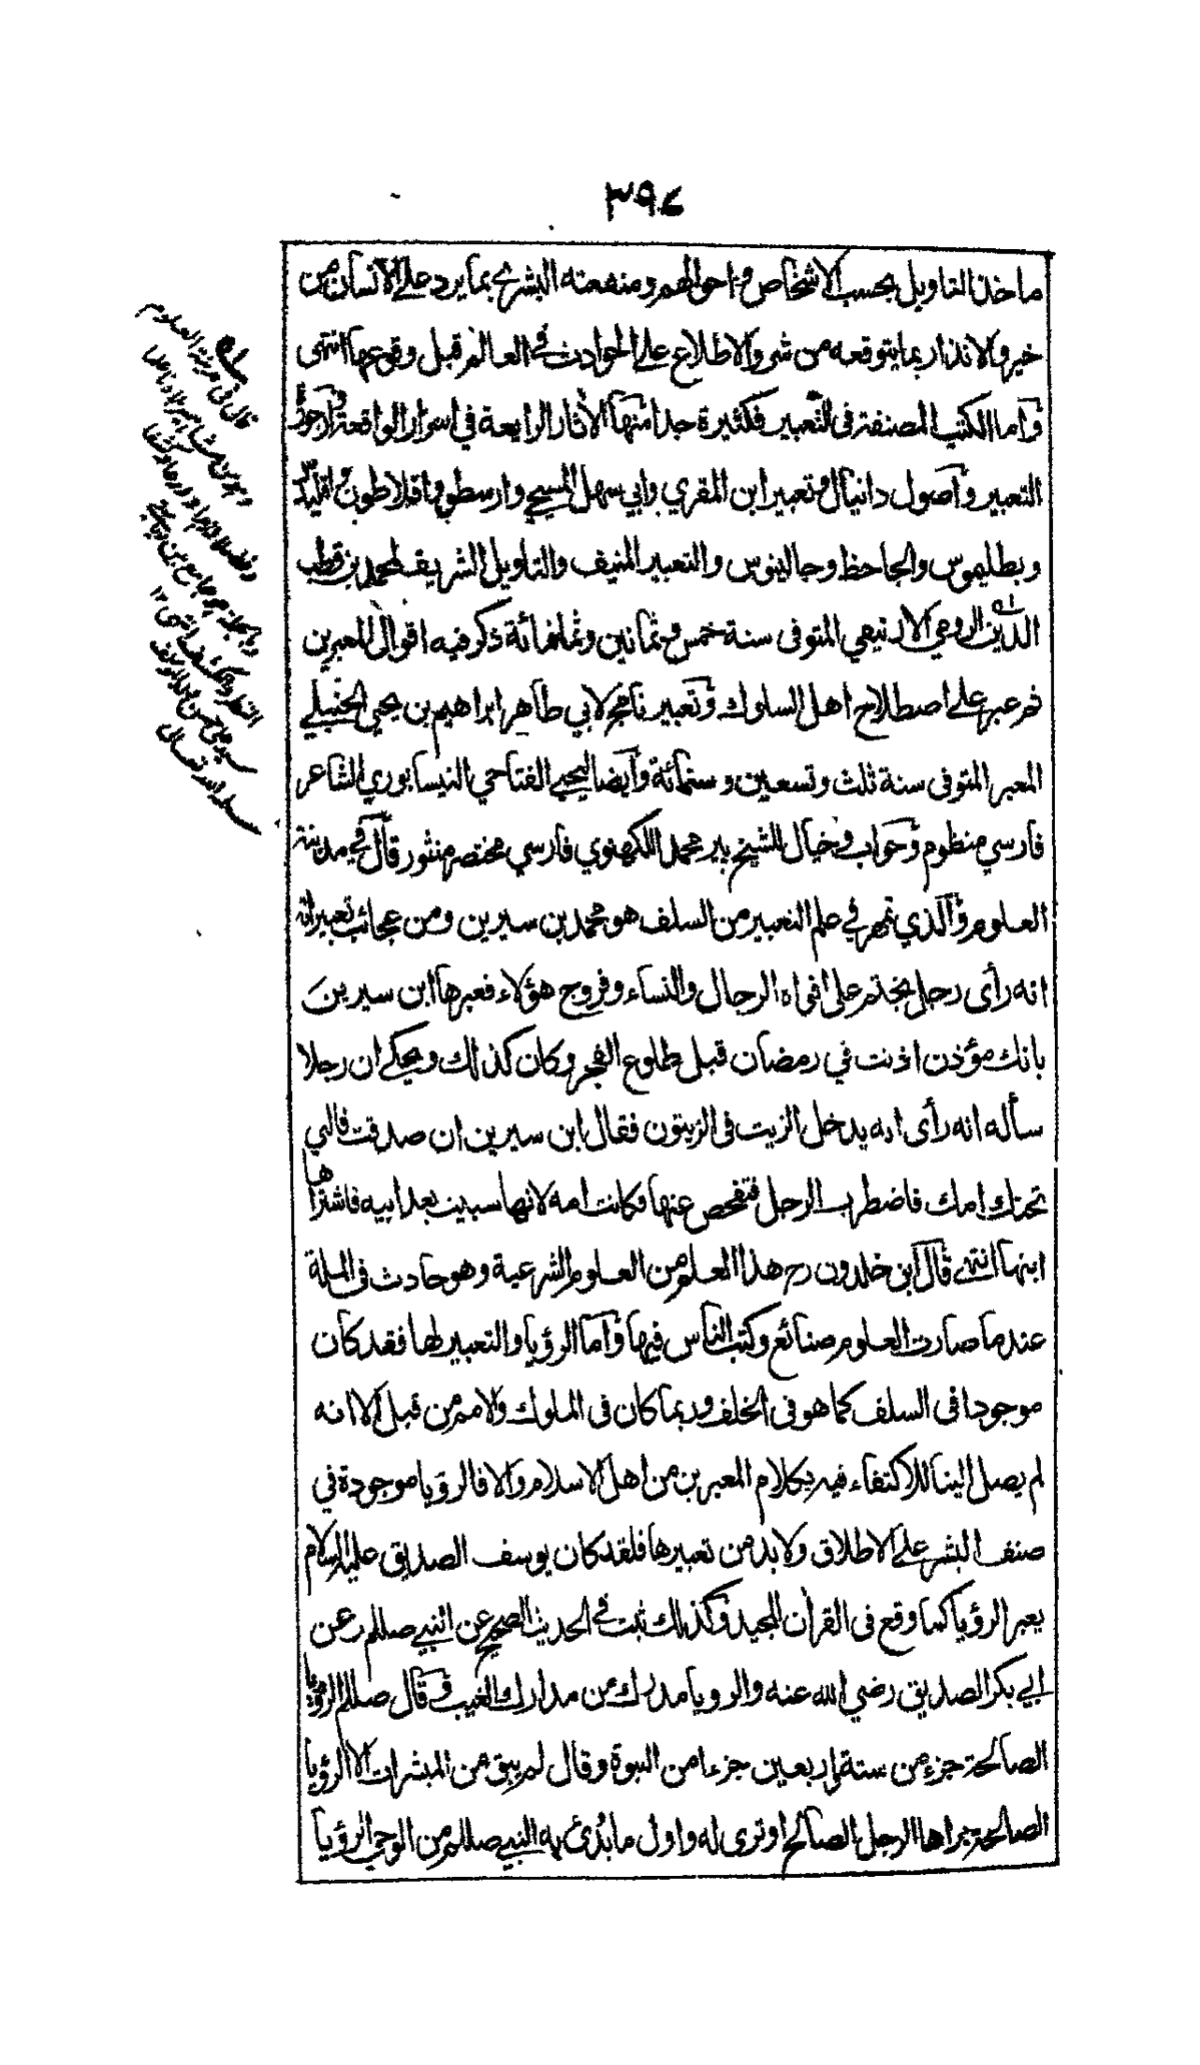 ٣٩٤
ماخذ التاويل بحسب الاشخاص واحوالهم ومنفعته البشرى بما يرد على الانسان من
خير والانذار بما يتوقعه من شر والاطلاع على الحوادث فى العالم قبل وقوعها انتهى
واما الكتب المصنفة فى التعبير فكثيرة جدا منها الآثار الرايعة في اسرار الواقعة وارجوزة
التعبير واصول دانيال وتعبير ابن المقري وابي سهل المسيحي وارسطو وافلاطون واقليدس
وبطليموس والجاحظ وجالينوس والتعبير المنيف والتاويل الشريف لمحمد بن قطب
الدين الرومي الازنيقي المتوفى سنة خمس وثمانين وثمانمائة ذكر فيه اقوال المعبرين
ثم عبر على اصطلاح اهل السلوك وتعبير نامجه لابي طاهر ابراهيم بن يحيى الحنبلي
المعبر المتوفى سنة ثلث وتسعين وستمائة وايضا ليحيى الفتاحي النيسابوري الشاعر
فارسي منظوم وخواب وخيال للشيخ پير محمد اللكهنوي فارسي مختصر منثور قال في مدينة
العلوم والذي تمهر في علم التعبير من السلف هو محمد بن سيرين ومن عجائب تعبيراته
انه رأى رجل يختم على افواه الرجال والنساء وفروج هؤلاء فعبرها ابن سيرين
بانك مؤذن اذنت في رمضان قبل طلوع الفجر وكان كذلك ويحكى ان رجلا
سأله انه رأى انه يدخل الزيت فى الزيتون فقال ابن سيرين ان صدقت فالتي
تحتك امك فاضطرب الرجل فتفحص عنها فكانت امه لانها سبيت بعد ابيه فاشتراها
ابنها انتهى قال ابن خلدون رح هذا العلم من العلوم الشرعية وهو حادث فى الملة
عندما صارت العلوم صنائع وكتب الناس فيها واما الرؤيا والتعبير لها فقد كان
موجودا فى السلف كما هو فى الخلف وربما كان فى الملوك والامم من قبل الا انه
لم يصل الينا للاكتفاء فيه بكلام المعبرين من اهل الاسلام والا فالرؤيا موجودة في
صنف البشر على الاطلاق ولا بد من تعبيرها فلقد كان يوسف الصديق عليه السلام
يعبر الرؤيا كما وقع فى القرآن المجيد وكذلك ثبت في الحديث الصحيح عن النبي صللم وعن
ابي بكر الصديق رضي الله عنه والرويا مدرك من مدارك الغيب وقال صللم الرؤيا
الصالحة جزء من ستة واربعين جزءا من النبوة وقال لم يبق من المبشرات الا الرؤيا
الصالحة يراها الرجل الصالح او ترى له واول ما بدئ به النبي صللم من الوحي الرؤيا
قال فى مدينة العلوم